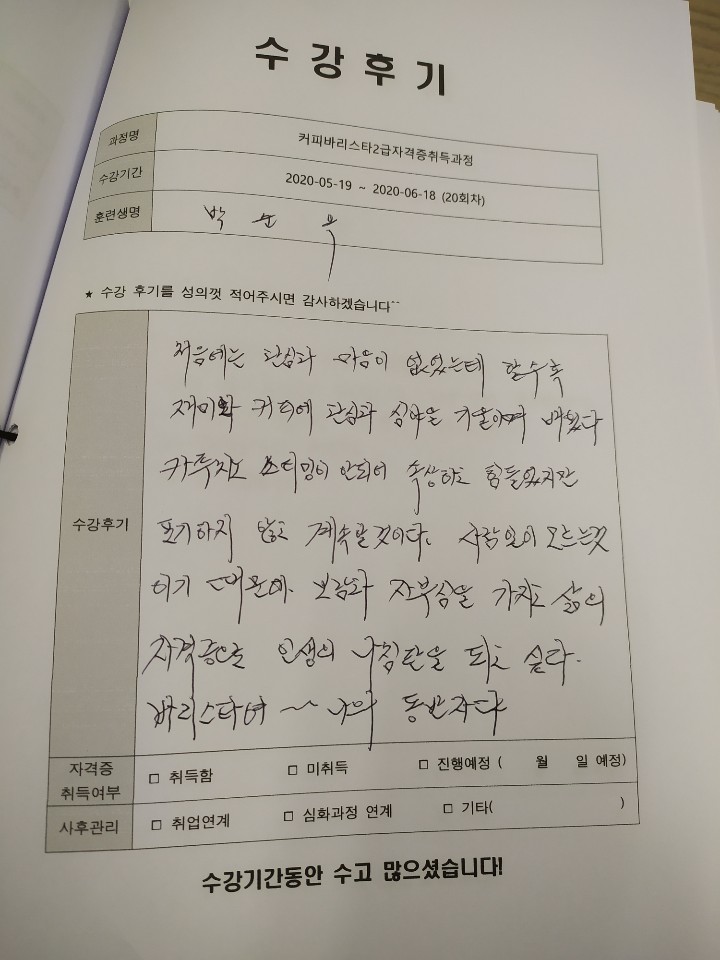 수강후기
과정명 커피바리스타2급자격증취득과정
수강기간 2020-05-19 ~ 2020-06-18 (20회차)
훈련생명 박순옥
★ 수강 후기를 성의껏 적어주시면 감사하겠습니다~~
수강후기
처음에는 관심과 마음이 없었는데 할수록
재미와 커피에 관심과 심야을 기울이며 배웠다
카푸치노 스티밍이 안되어 속상하고 힘들었지만
포기하지 않고 계속할것이다. 사람일이 모르는것
이기 때문에. 보람과 자부심을 가지고 삶의
자격증으로 인생의 나침판을 되고 싶다.
바리스타여 ~ 나의 동반자다
자격증 취득여부 □ 취득함 □ 미취득 □ 진행예정 ( 월 일 예정)
사후관리 □ 취업연계 □ 심화과정 연계 □ 기타( )
수강기간동안 수고 많으셨습니다!